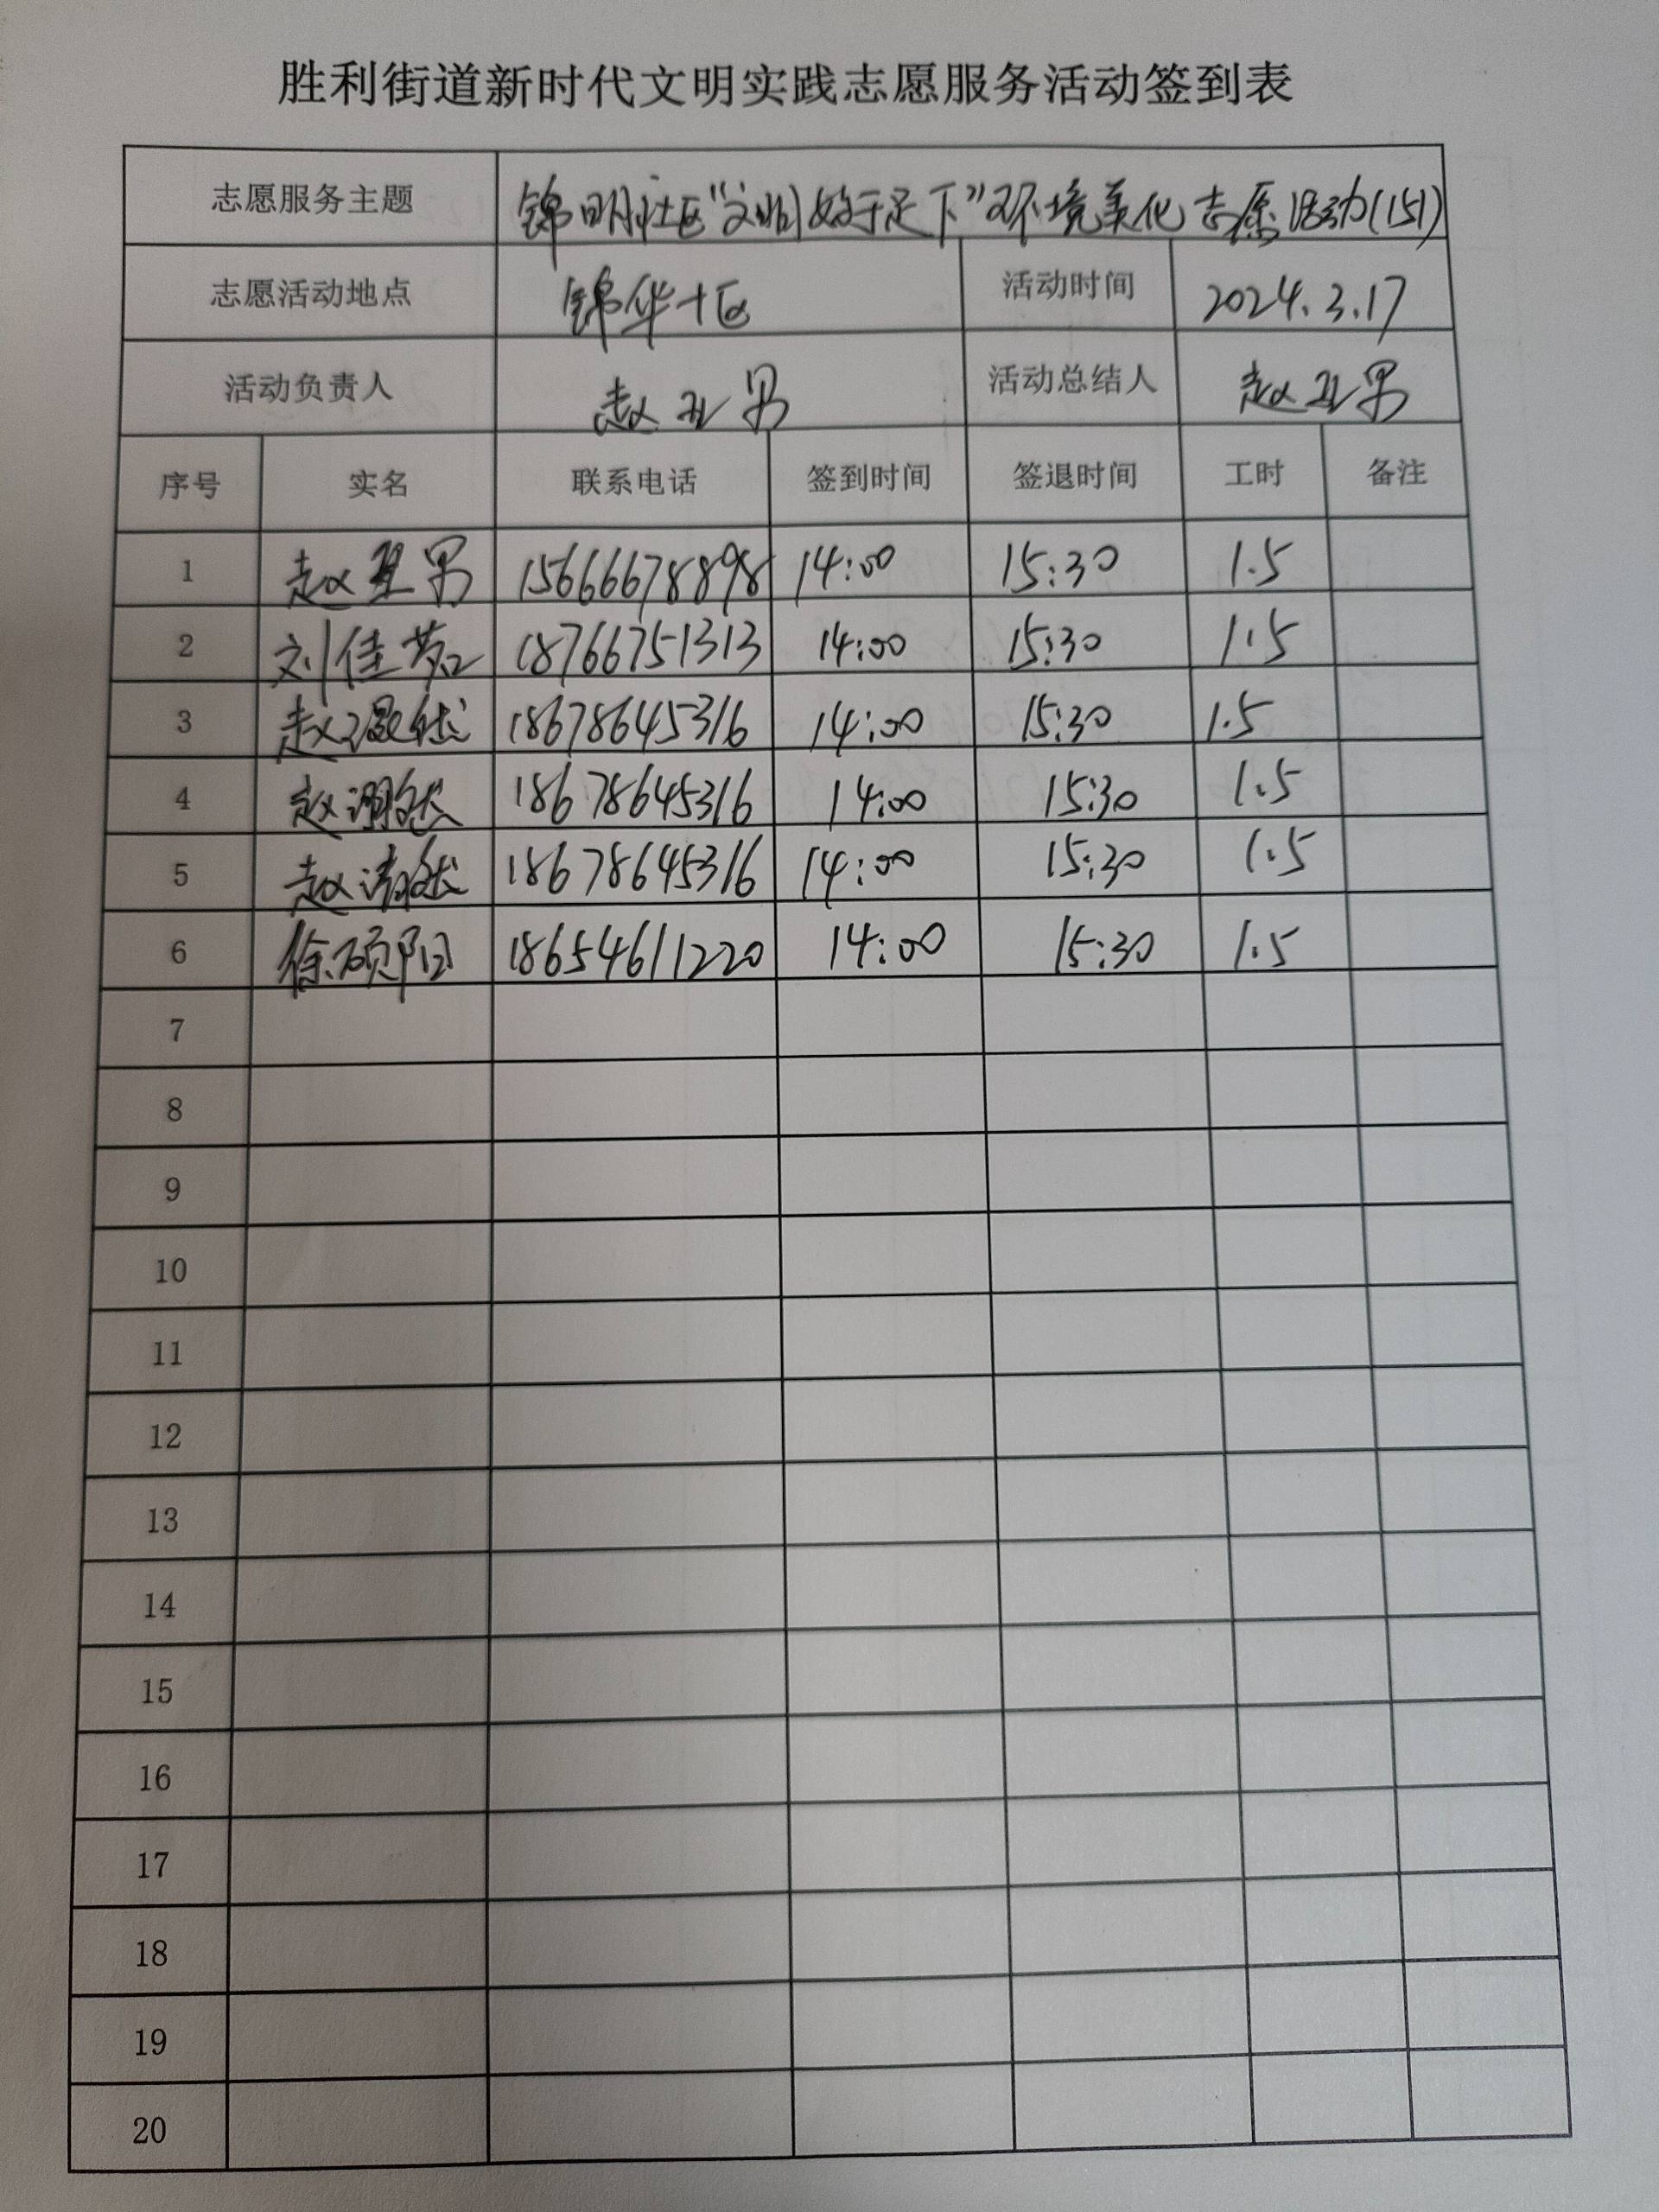 胜利街道新时代文明实践志愿服务活动签到表
志愿服务主题 锦明社区“文明始于足下”环境美化志愿活动(151)
志愿活动地点 锦华十区 活动时间 2024.3.17
活动负责人 赵亚男 活动总结人 赵亚男
序号 实名 联系电话 签到时间 签退时间 工时 备注
1 赵亚男 15666678898 14:00 15:30 1.5
2 刘佳茗 18766751313 14:00 15:30 1.5
3 赵 然 18678645316 14:00 15:30 1.5
4 赵 然 18678645316 14:00 15:30 1.5
5 赵 然 18678645316 14:00 15:30 1.5
6 徐硕阳 18654611220 14:00 15:30 1.5
7
8
9
10
11
12
13
14
15
16
17
18
19
20